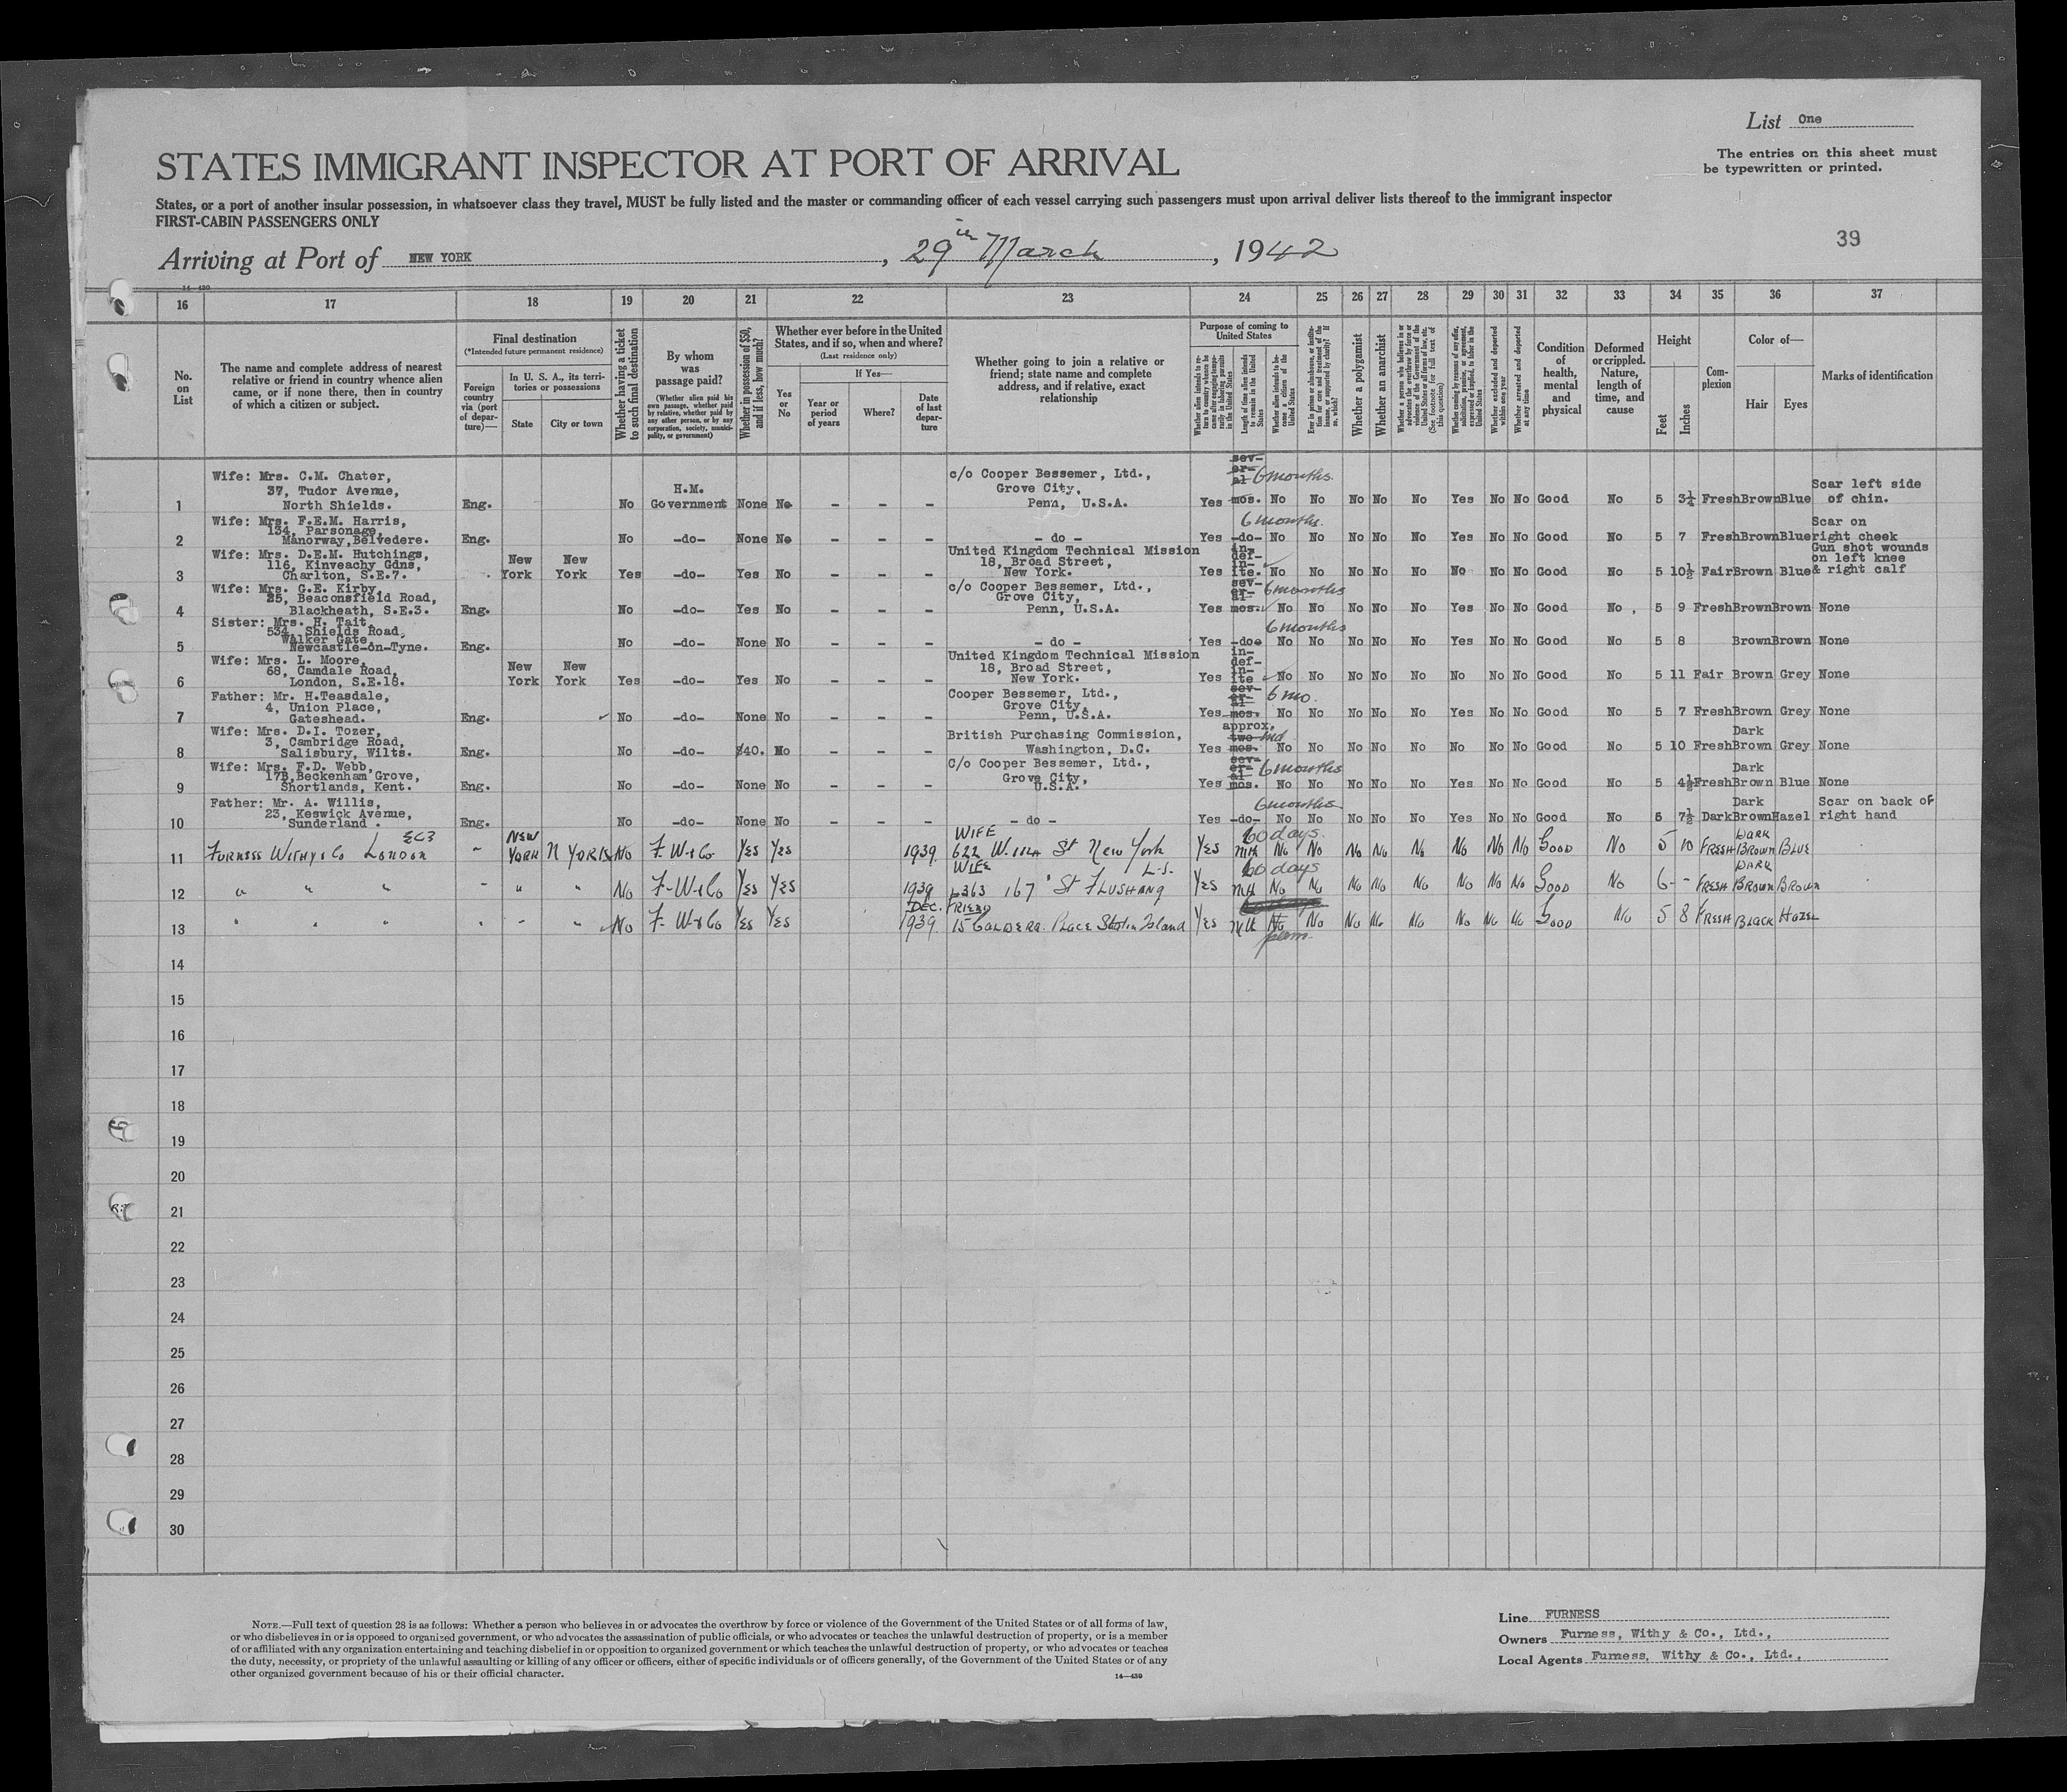 List One
The entries on this sheet must
be typewritten or printed.
STATES IMMIGRANT INSPECTOR AT PORT OF ARRIVAL
States, or a port of another insular possession, in whatsoever class they travel, MUST be fully listed and the master or commanding officer of each vessel carrying such passengers must upon arrival deliver lists thereof to the immigrant inspector
FIRST-CABIN PASSENGERS ONLY
39
Arriving at Port of NEW YORK, 29th March, 1942
14—430
16 17 18 19 20 21 22 23 24 25 26 27 28 29 30 31 32 33 34 35 36 37
No. on List
The name and complete address of nearest
relative or friend in country whence alien
came, or if none there, then in country
of which a citizen or subject.
Final destination
(*Intended future permanent residence)
Foreign country via (port of departure)—
In U. S. A., its territories or possessions
State
City or town
Whether having a ticket to such final destination
By whom was passage paid?
(Whether alien paid his own passage, whether paid by relative, whether paid by any other person, or by any corporation, society, municipality, or government)
Whether in possession of $50, and if less, how much?
Whether ever before in the United States, and if so, when and where?
(Last residence only)
Yes or No
If Yes—
Year or period of years
Where?
Date of last departure
Whether going to join a relative or
friend; state name and complete
address, and if relative, exact
relationship
Purpose of coming to United States
Length of time alien intends to remain in the United States
Whether alien intends to become a citizen of the United States
Whether a polygamist
Whether an anarchist
Whether excluded and deported within one year
Whether arrested and deported at any time
Condition of health, mental and physical
Deformed or crippled. Nature, length of time, and cause
Height
Feet
Inches
Complexion
Color of—
Hair
Eyes
Marks of identification
Wife: Mrs. C.M. Chater,
37, Tudor Avenue,
1 North Shields. Eng. No H.M. Government None No – – – c/o Cooper Bessemer, Ltd., Grove City, Penn, U.S.A. Yes sev-er-al mos. 6 months. No No No No No Yes No No Good No 5 3½ Fresh Brown Blue Scar left side of chin.
Wife: Mrs. F.E.M. Harris,
134, Parsonage,
2 Manorway, Belvedere. Eng. No -do- None No – – – - do - Yes -do- 6 months. No No No No No Yes No No Good No 5 7 Fresh Brown Blue Scar on right cheek
Wife: Mrs. D.E.M. Hutchings,
116, Kinveachy Gdns,
3 Charlton, S.E.7. New York New York Yes -do- Yes No – – – United Kingdom Technical Mission 18, Broad Street, New York. Yes in-def-in-ite. No No No No No No No No Good No 5 10½ Fair Brown Blue Gun shot wounds on left knee & right calf
Wife: Mrs. G.E. Kirby,
25, Beaconsfield Road,
4 Blackheath, S.E.3. Eng. No -do- Yes No – – – c/o Cooper Bessemer, Ltd., Grove City, Penn, U.S.A. Yes sev-er-al mos. 6 months No No No No No Yes No No Good No 5 9 Fresh Brown Brown None
Sister: Mrs. H. Tait,
534, Shields Road,
Walker Gate,
5 Newcastle-on-Tyne. Eng. No -do- None No – – – - do - Yes -do- 6 months No No No No No Yes No No Good No 5 8 Brown Brown None
Wife: Mrs. L. Moore,
68, Camdale Road,
6 London, S.E.18. New York New York Yes -do- Yes No – – – United Kingdom Technical Mission 18, Broad Street, New York. Yes in-def-in-ite No No No No No No No No Good No 5 11 Fair Brown Grey None
Father: Mr. H.Teasdale,
4, Union Place,
7 Gateshead. Eng. No -do- None No – – – Cooper Bessemer, Ltd., Grove City, Penn, U.S.A. Yes sev-er-al mos. 6 mo. No No No No No Yes No No Good No 5 7 Fresh Brown Grey None
Wife: Mrs. D.I. Tozer,
3, Cambridge Road,
8 Salisbury, Wilts. Eng. No -do- $40. No – – – British Purchasing Commission, Washington, D.C. Yes approx. two mos. Ind No No No No No No No No Good No 5 10 Fresh Dark Brown Grey None
Wife: Mrs. F.D. Webb,
17B, Beckenham Grove,
9 Shortlands, Kent. Eng. No -do- None No – – – C/o Cooper Bessemer, Ltd., Grove City, U.S.A. Yes sev-er-al mos. 6 months No No No No No Yes No No Good No 5 4½ Fresh Dark Brown Blue None
Father: Mr. A. Willis,
23, Keswick Avenue,
10 Sunderland. Eng. No -do- None No – – – - do - Yes -do- 6 months. No No No No No Yes No No Good No 5 7½ Dark Dark Brown Hazel Scar on back of right hand
11 FURNESS WITHY & Co LONDON EC3 " NEW YORK N YORK No F. W & Co YES YES 1939 WIFE 622 W. St New York YES 60 days No No No No No No No No GOOD No 5 10 FRESH DARK BROWN BLUE
12 " " " " " " No F-W & Co YES YES 1939 WIFE 167 St FLUSHANG L.I. YES 60 days No No No No No No No No GOOD No 6 - FRESH DARK BROWN BROWN
13 " " " " " " No F- W & Co YES YES DEC. 1939 FRIEND 15 PLACE Staten Island YES No perm. No No No No No No No GOOD No 5 8 FRESH BLACK HAZEL
14
15
16
17
18
19
20
21
22
23
24
25
26
27
28
29
30
NOTE.—Full text of question 28 is as follows: Whether a person who believes in or advocates the overthrow by force or violence of the Government of the United States or of all forms of law,
or who disbelieves in or is opposed to organized government, or who advocates the assassination of public officials, or who advocates or teaches the unlawful destruction of property, or is a member
of or affiliated with any organization entertaining and teaching disbelief in or opposition to organized government or which teaches the unlawful destruction of property, or who advocates or teaches
the duty, necessity, or propriety of the unlawful assaulting or killing of any officer or officers, either of specific individuals or of officers generally, of the Government of the United States or of any
other organized government because of his or their official character.
14—430
Line FURNESS
Owners Furness, Withy & Co., Ltd.,
Local Agents Furness, Withy & Co., Ltd.,